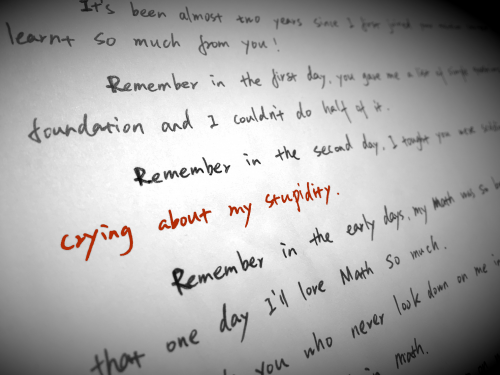 It's been almost two years since I first joined our
learnt so much from you!
Remember in the first day, you gave me a list of simple
foundation and I couldn't do half of it.
Remember in the second day, I tought you were
crying about my stupidity.
Remember in the early days, my Math was so
that one day I'll love Math so much.
you who never look down on me in
in math.